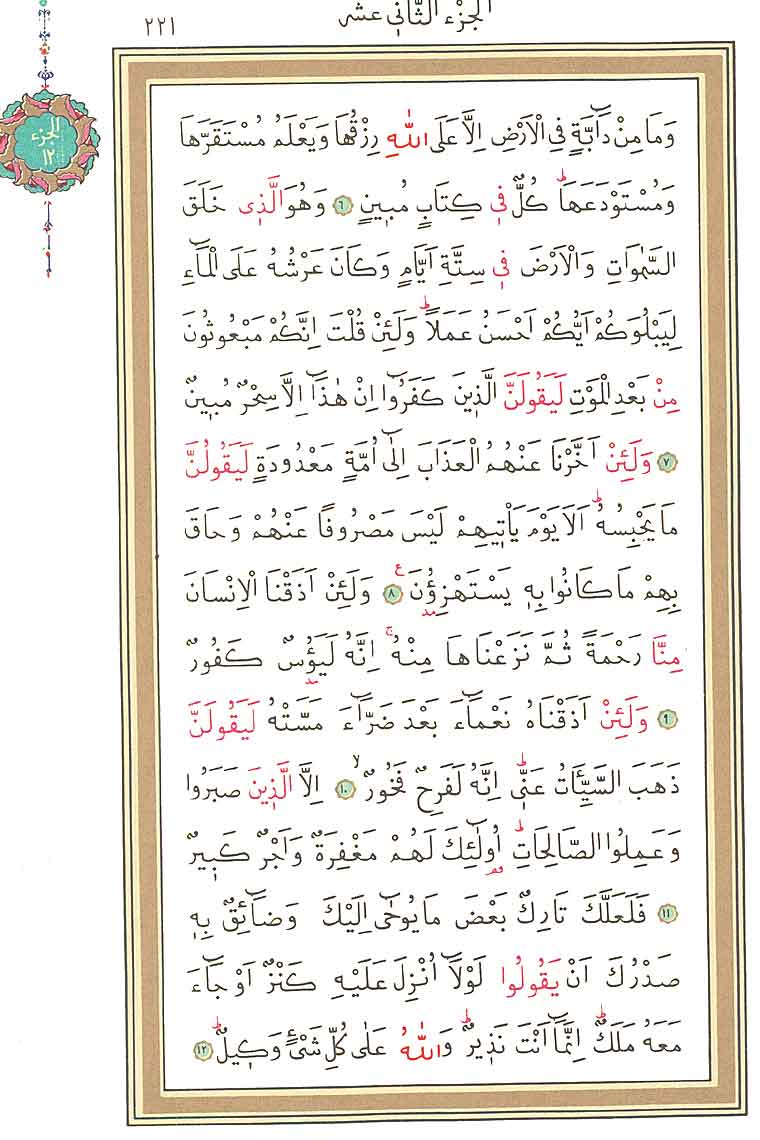 الجزء الثاني عشر
٢٢١
الجزء
١٢
وَمَا مِنْ دَٓابَّةٍ فِي الْاَرْضِ اِلَّا عَلَى اللّٰهِ رِزْقُهَا وَيَعْلَمُ مُسْتَقَرَّهَا
وَمُسْتَوْدَعَهَاۜ كُلٌّ ف۪ي كِتَابٍ مُب۪ينٍ ٦ وَهُوَ الَّذ۪ي خَلَقَ
السَّمٰوَاتِ وَالْاَرْضَ ف۪ي سِتَّةِ اَيَّامٍ وَكَانَ عَرْشُهُ عَلَى الْمَٓاءِ
لِيَبْلُوَكُمْ اَيُّكُمْ اَحْسَنُ عَمَلًاۜ وَلَئِنْ قُلْتَ اِنَّكُمْ مَبْعُوثُونَ
مِنْ بَعْدِ الْمَوْتِ لَيَقُولَنَّ الَّذ۪ينَ كَفَرُٓوا اِنْ هٰذَٓا اِلَّا سِحْرٌ مُب۪ينٌ
٧ وَلَئِنْ اَخَّرْنَا عَنْهُمُ الْعَذَابَ اِلٰٓى اُمَّةٍ مَعْدُودَةٍ لَيَقُولُنَّ
مَا يَحْبِسُهُۜ اَلَا يَوْمَ يَأْت۪يهِمْ لَيْسَ مَصْرُوفًا عَنْهُمْ وَحَاقَ
بِهِمْ مَا كَانُوا بِه۪ يَسْتَهْزِؤُ۫نَ ٨ وَلَئِنْ اَذَقْنَا الْاِنْسَانَ
مِنَّا رَحْمَةً ثُمَّ نَزَعْنَاهَا مِنْهُۚ اِنَّهُ لَيَؤُ۫سٌ كَفُورٌ
٩ وَلَئِنْ اَذَقْنَاهُ نَعْمَٓاءَ بَعْدَ ضَرَّٓاءَ مَسَّتْهُ لَيَقُولَنَّ
ذَهَبَ السَّيِّـَٔاتُ عَنّ۪يۜ اِنَّهُ لَفَرِحٌ فَخُورٌۙ ١٠ اِلَّا الَّذ۪ينَ صَبَرُوا
وَعَمِلُوا الصَّالِحَاتِۜ اُو۬لٰٓئِكَ لَهُمْ مَغْفِرَةٌ وَاَجْرٌ كَب۪يرٌ
١١ فَلَعَلَّكَ تَارِكٌ بَعْضَ مَا يُوحٰٓى اِلَيْكَ وَضَٓائِقٌ بِه۪
صَدْرُكَ اَنْ يَقُولُوا لَوْلَٓا اُنْزِلَ عَلَيْهِ كَنْزٌ اَوْ جَٓاءَ
مَعَهُ مَلَكٌۜ اِنَّمَٓا اَنْتَ نَذ۪يرٌۜ وَاللّٰهُ عَلٰى كُلِّ شَيْءٍ وَك۪يلٌۜ ١٢